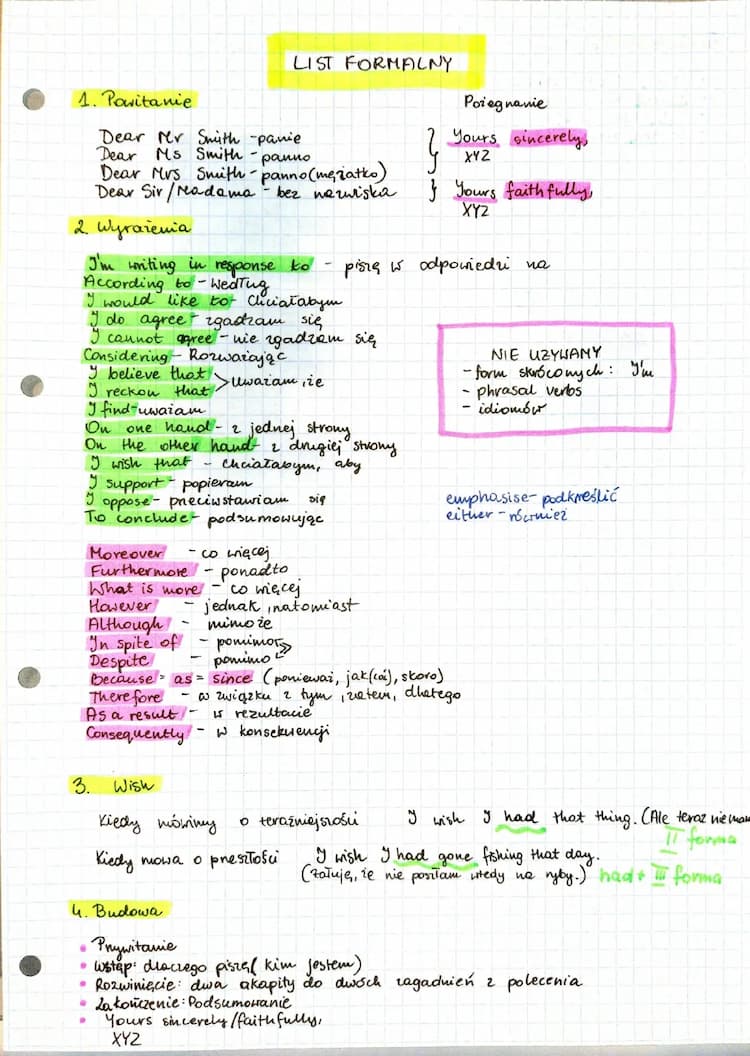 LIST FORMALNY
1. Powitanie
Pożegnanie
Dear Mr Smith - panie
Dear Ms Smith - panno
Dear Mrs Smith - panno (mężatko)
Dear Sir/Madama - bez nazwiska
} Yours sincerely,
XYZ
} Yours faithfully,
XYZ
2. Wyrażenia
I'm writing in response to - piszę w odpowiedzi na
According to - według
I would like to - Chciałabym
I do agree - zgadzam się
I cannot agree - nie zgadzam się
Considering - Rozważając
I believe that
I reckon that > uważam, że
I find - uważam
On one hand - z jednej strony
On the other hand - z drugiej strony
I wish that - chciałabym, aby
I support - popieram
I oppose - przeciwstawiam się
To conclude - podsumowując
NIE UŻYWAMY
- form skróconych: I'm
- phrasal verbs
- idiomów
emphasise - podkreślić
either - również
Moreover - co więcej
Furthermore - ponadto
What is more - co więcej
However - jednak, natomiast
Although - mimo że
In spite of - pomimo
Despite - pomimo
Because = as = since (ponieważ, jak(coś), skoro)
Therefore - w związku z tym, zatem, dlatego
As a result - w rezultacie
Consequently - w konsekwencji
3. Wish
Kiedy mówimy o teraźniejszości I wish I had that thing. (Ale teraz nie mam
II forma
Kiedy mowa o przeszłości I wish I had gone fishing that day.
(Żałuję, że nie poszłam wtedy na ryby.) had + III forma
4. Budowa
• Przywitanie
• Wstęp: dlaczego piszę (kim jestem)
• Rozwinięcie: dwa akapity do dwóch zagadnień z polecenia
• Zakończenie: Podsumowanie
• Yours sincerely/faithfully,
XYZ